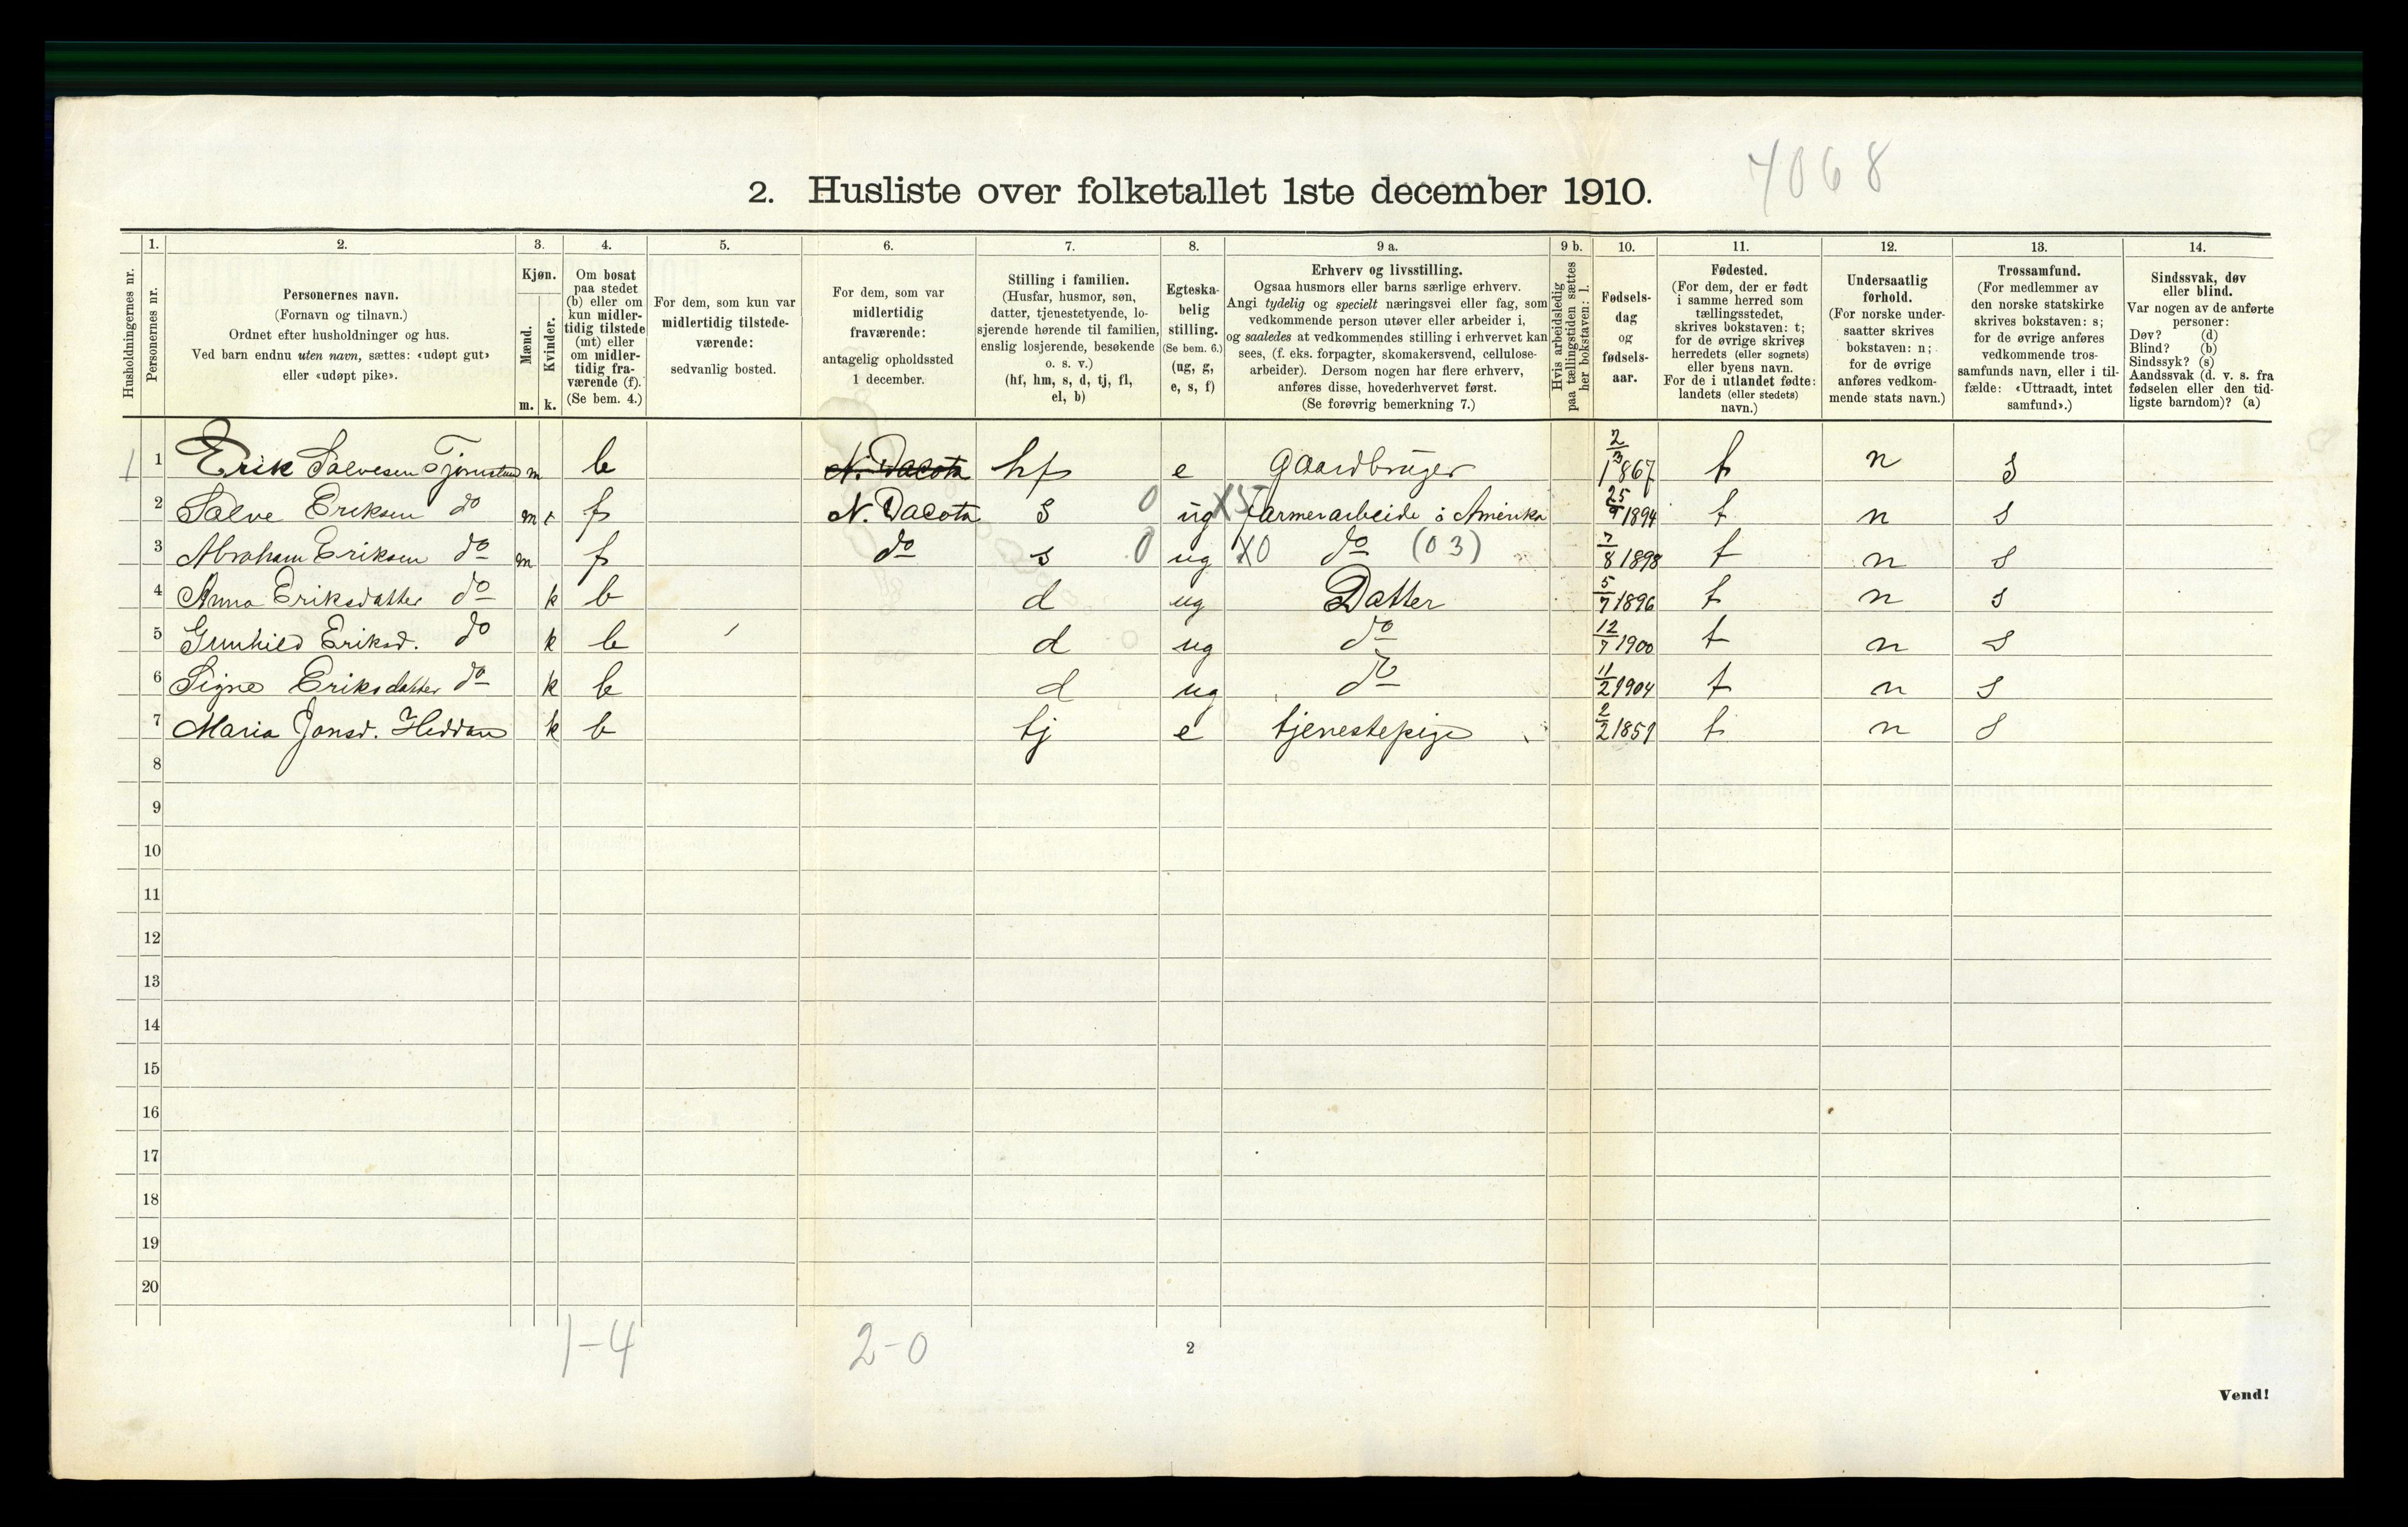 4068
2. Husliste over folketallet 1ste december 1910.
Husholdningernes nr.
1. Personernes nr.
2. Personernes navn.
(Fornavn og tilnavn.)
Ordnet efter husholdninger og hus.
Ved barn endnu uten navn, sættes: «udøpt gut»
eller «udøpt pike».
3. Kjøn.
Mænd. m.
Kvinder. k.
4. Om bosat
paa stedet
(b) eller om
kun midler-
tidig tilstede
(mt) eller
om midler-
tidig fra-
værende (f).
(Se bem. 4.)
5. For dem, som kun var
midlertidig tilstede-
værende:
sedvanlig bosted.
6. For dem, som var
midlertidig
fraværende:
antagelig opholdssted
1 december.
7. Stilling i familien.
(Husfar, husmor, søn,
datter, tjenestetyende, lo-
sjerende hørende til familien,
enslig losjerende, besøkende
o. s. v.)
(hf, hm, s, d, tj, fl,
el, b)
8. Egteska-
belig
stilling.
(Se bem. 6.)
(ug, g,
e, s, f)
9 a. Erhverv og livsstilling.
Ogsaa husmors eller barns særlige erhverv.
Angi tydelig og specielt næringsvei eller fag, som
vedkommende person utøver eller arbeider i,
og saaledes at vedkommendes stilling i erhvervet kan
sees, (f. eks. forpagter, skomakersvend, cellulose-
arbeider). Dersom nogen har flere erhverv,
anføres disse, hovederhvervet først.
(Se forøvrig bemerkning 7.)
9 b. Hvis arbeidsledig
paa tællingstiden sættes
her bokstaven: l.
10. Fødsels-
dag
og
fødsels-
aar.
11. Fødested.
(For dem, der er født
i samme herred som
tællingsstedet,
skrives bokstaven: t;
for de øvrige skrives
herredets (eller sognets)
eller byens navn.
For de i utlandet fødte:
landets (eller stedets)
navn.)
12. Undersaatlig
forhold.
(For norske under-
saatter skrives
bokstaven: n;
for de øvrige
anføres vedkom-
mende stats navn.)
13. Trossamfund.
(For medlemmer av
den norske statskirke
skrives bokstaven: s;
for de øvrige anføres
vedkommende tros-
samfunds navn, eller i til-
fælde: «Uttraadt, intet
samfund».)
14. Sindssvak, døv
eller blind.
Var nogen av de anførte
personer:
Døv? (d)
Blind? (b)
Sindssyk? (s)
Aandssvak (d. v. s. fra
fødselen eller den tid-
ligste barndom)? (a)
1 1 Erik Salvesen m b N. Dacota hf e Gaardbruger 2/3 1867 t n s
2 Salve Eriksen do m f N. Dacota s 0 ug X5 farmerarbeide i Amerika 25/9 1894 t n s
3 Abraham Eriksen do m f do s 0 ug X0 do (03) 7/8 1898 t n s
4 Anna Eriksdatter do k b d ug Datter 5/7 1896 t n s
5 Gunhild Eriksd. do k b d ug do 12/7 1900 t n s
6 Signe Eriksdatter do k b d ug do 11/2 1904 t n s
7 Maria Jonsd. Heddan k b tj e tjenestepige 2/2 1851 t n s
8
9
10
11
12
13
14
15
16
17
18
19
20
1-4 2-0
2
Vend!